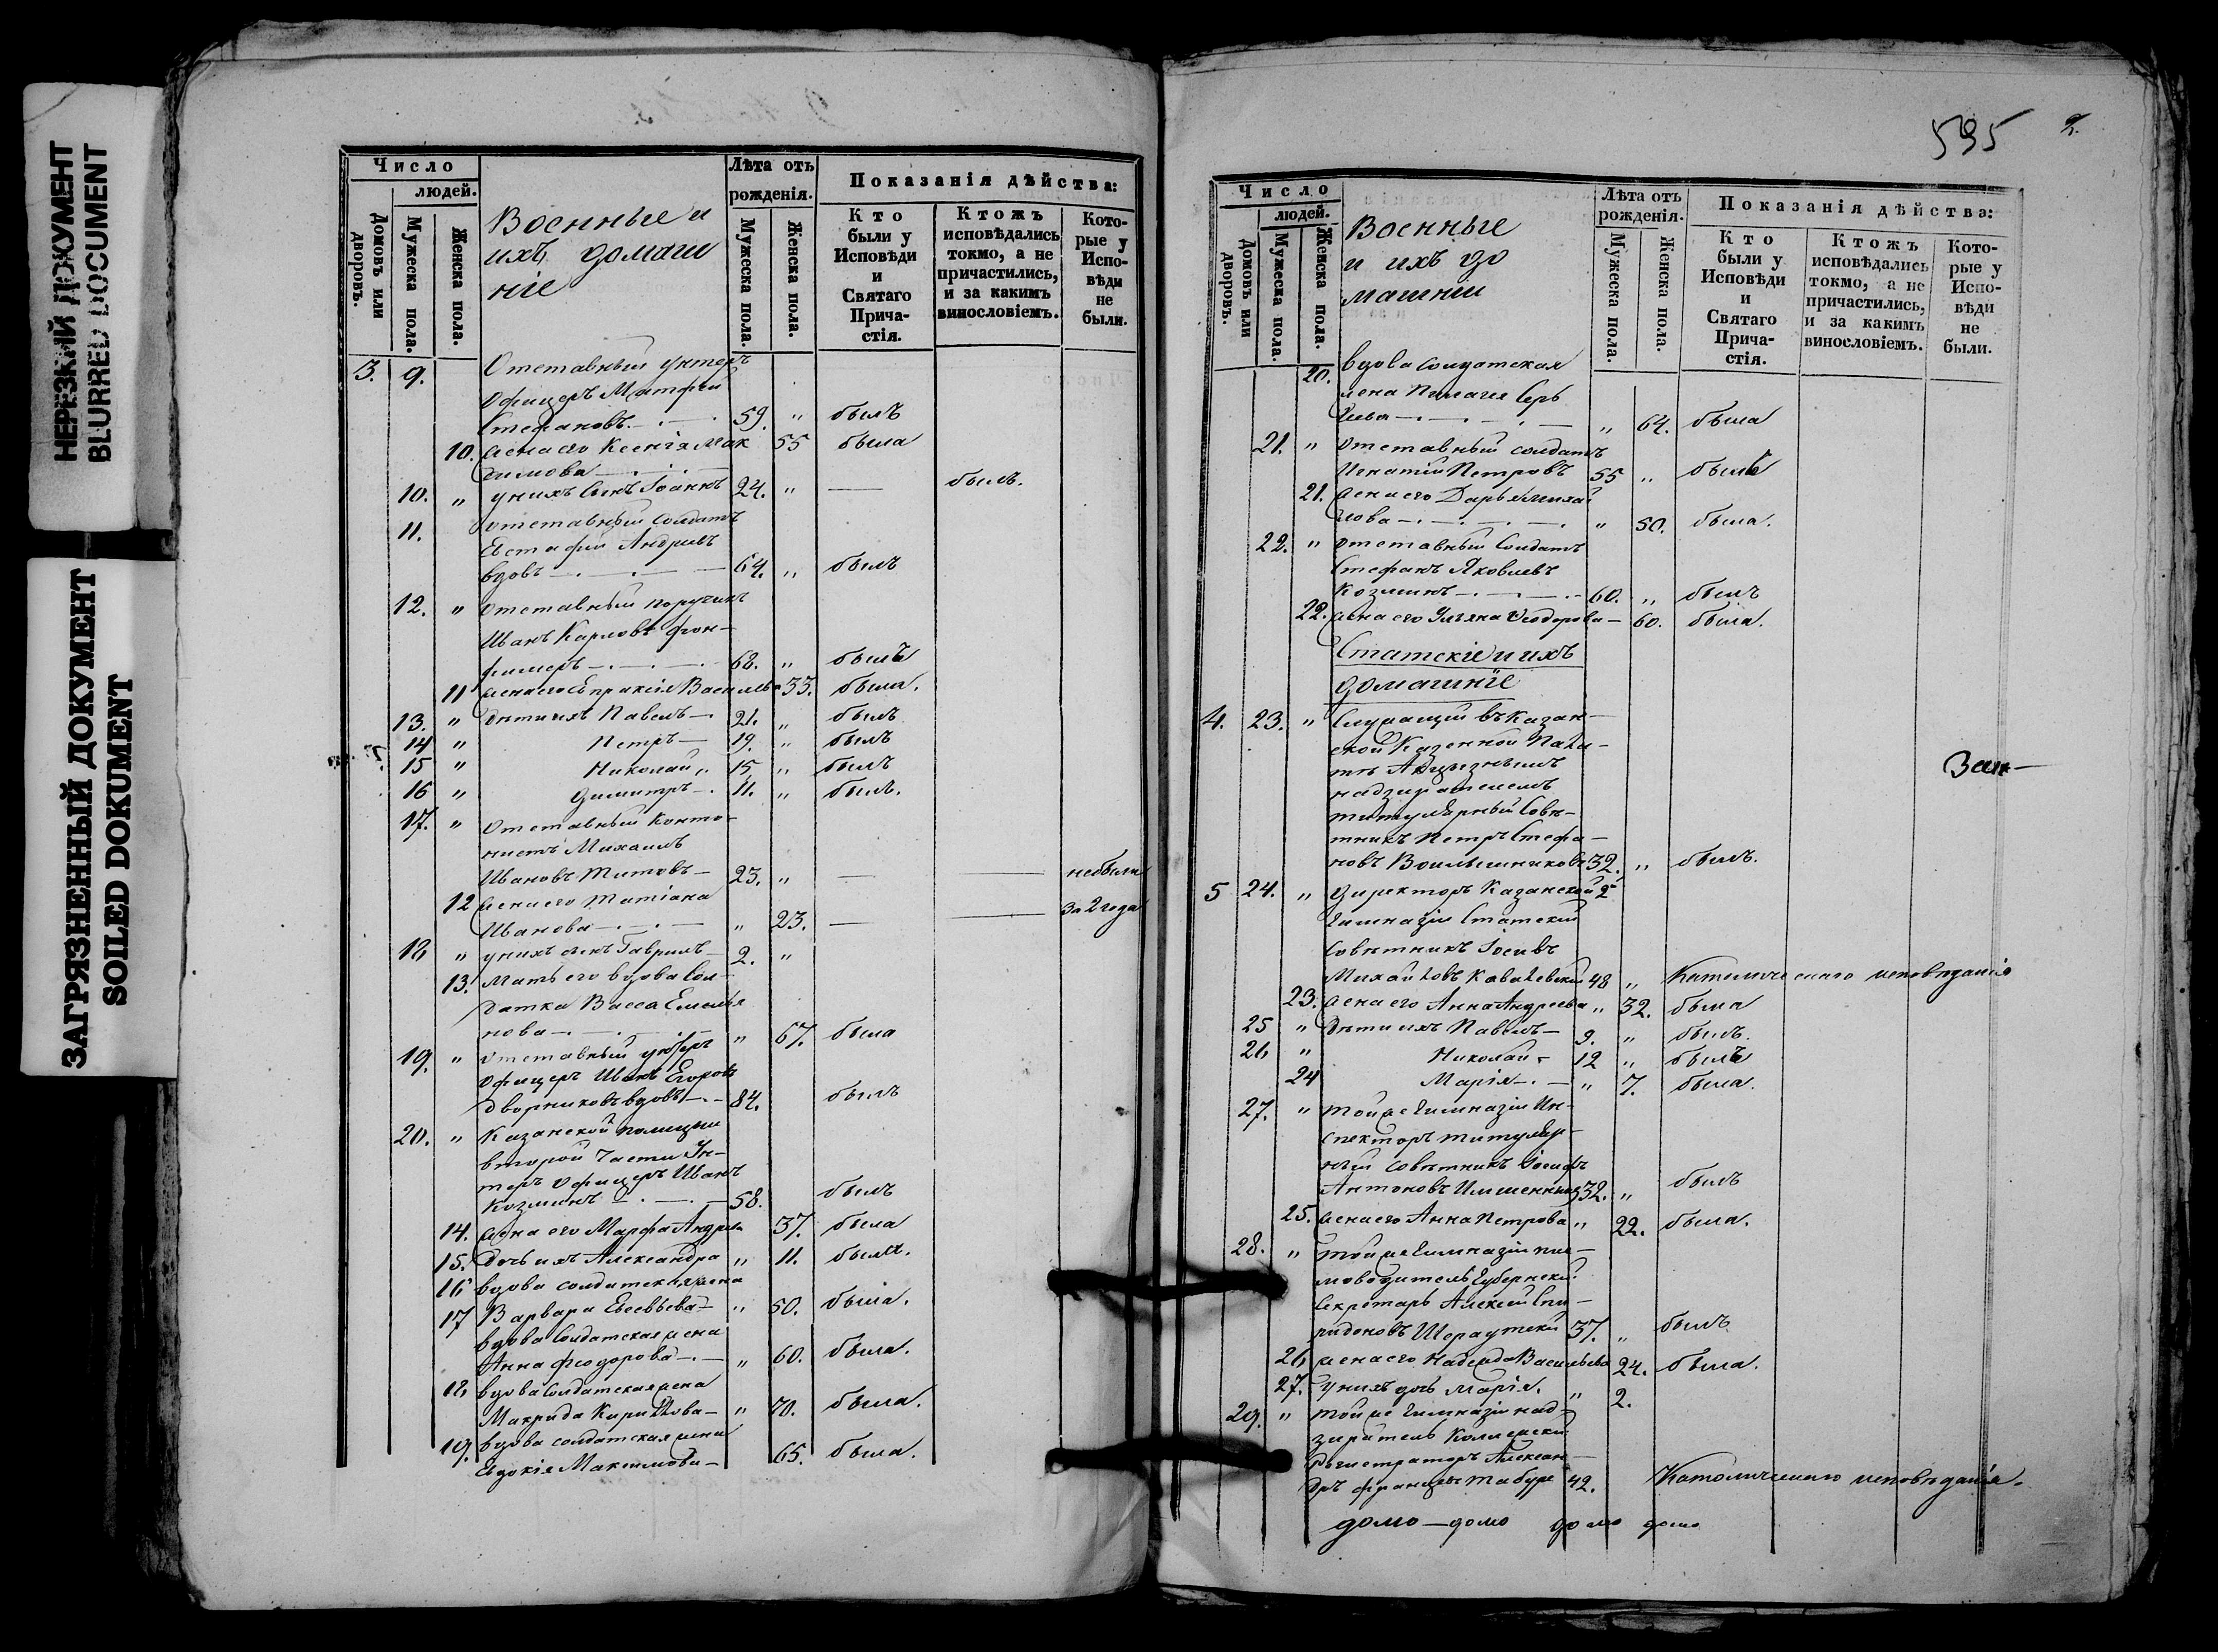 НЕРЕЗКИЙ ДОКУМЕНТ
BLURRED DOCUMENT
ЗАГРЯЗНЕННЫЙ ДОКУМЕНТ
SOILED DOKUMENT
Число
людей.
Домовъ или дворовъ.
Мужеска пола.
Женска пола.
Военные и
ихъ домаш
ніе
Лѣта отъ
рожденія.
Мужеска пола.
Женска пола.
Показанія дѣйства:
Кто были у Исповѣди и Святаго Прича-стія.
Ктожъ исповѣдались токмо, а не причастились, и за какимъ винословіемъ.
Кото-рые у Испо-вѣди не были.
3. 9. Отставный унтеръ
офицеръ Матфей
Стефановъ 59. " былъ
10. жена его Ксенія Мак
симова 55 была
10. " у нихъ сынъ Іоаннъ 24. " — былъ.
11. отставный солдатъ
Евстафий Андреевъ
вдовъ 64. " былъ
12. " отставный поручикъ
Иванъ Карловъ фон-
68. " былъ
11 жена его Епраксія Васильев 33. была.
13. " дѣти ихъ Павелъ — 21. " былъ
14 " Петръ — 19. " былъ
15 " Николай " 15 " былъ
16 " Димитръ — 11. " былъ.
17. " Отставный канто-
нистъ Михаилъ
Ивановъ Титовъ — 23. " — — небыли
12 жена его Татіана
Иванова " 23. — — за 2 года
18 " у нихъ сынъ Гаврилъ — 2. "
13. Мать его вдова сол-
датка Васса Емелья
нова " 67. была
19. " отставный унтеръ
офицеръ Иванъ Егоровъ
Дворниковъ вдовъ — 84. былъ
20. " Казанской полиции
второй части Ун-
теръ офицеръ Иванъ
Козминъ — 58. былъ
14. жена его Марфа Андреева 37. была
15. Дочь ихъ Александра " 11. была.
16 вдова солдатская жена
17 Варвара Евсевьева — " 50. была.
вдова солдатская жена
Анна Феодорова — " 60. была.
18 вдова солдатская жена
Макрида Кирилова — " 70. была.
19. вдова солдатская жена
Евдокія Максимова — 65. была.
595 2.
Число
людей.
Домовъ или дворовъ.
Мужеска пола.
Женска пола.
Военные
и ихъ до
машніи
Лѣта отъ
рожденія.
Мужеска пола.
Женска пола.
Показанія дѣйства:
Кто были у Исповѣди и Святаго Прича-стія.
Ктожъ исповѣдались токмо, а не причастились, и за какимъ винословіемъ.
Кото-рые у Испо-вѣди не были.
20. вдова солдатская
жена Пелагея Серь
геева " 64. была
21. " отставный солдатъ
Игнатій Петровъ 55 " былъ
21. жена его Дарья Михай
лова " 50. была.
22. " отставный солдатъ
Стефанъ Яковлевъ
Козминъ 60. " былъ
22. жена его Ульяна Феодорова — 60. была.
Статскіе и ихъ
домашніе
4. 23. " Служащій въ Казан-
ской Казенной Пала-
тѣ Акцизнымъ
надзирателемъ
титулярный совѣ-
тникъ Петръ Стефа-
новъ 32. " былъ.
5 24. " Директоръ Казанской 2й
Гимназіи Статский
совѣтникъ Іосивъ
Михайловъ Кавалевскій 48 " Католическаго исповѣданія
23. жена его Анна Андреева " 32. была
25 " дѣти ихъ Павелъ — 9. " былъ.
26 " Николай — 12 " былъ
24 Марія — " 7. была.
27. " той же гимназіи Ин-
спекторъ титуляр-
ный совѣтникъ Іосифъ
Антоновъ 32. " былъ
25. жена его Анна Петрова " 22. была.
28. " той же гимназіи пис-
моводитель Губернскій
Секретарь Алексей Спи-
ридоновъ 37. " былъ
26 жена его Надежда Васильева 24. была.
27. у нихъ дочь Марія. " 2.
29. " той же гимназіи над-
зиратель Колежскій
Регистраторъ Алексан-
дръ 42. Католическаго исповѣданія.
домо — домо домо домо